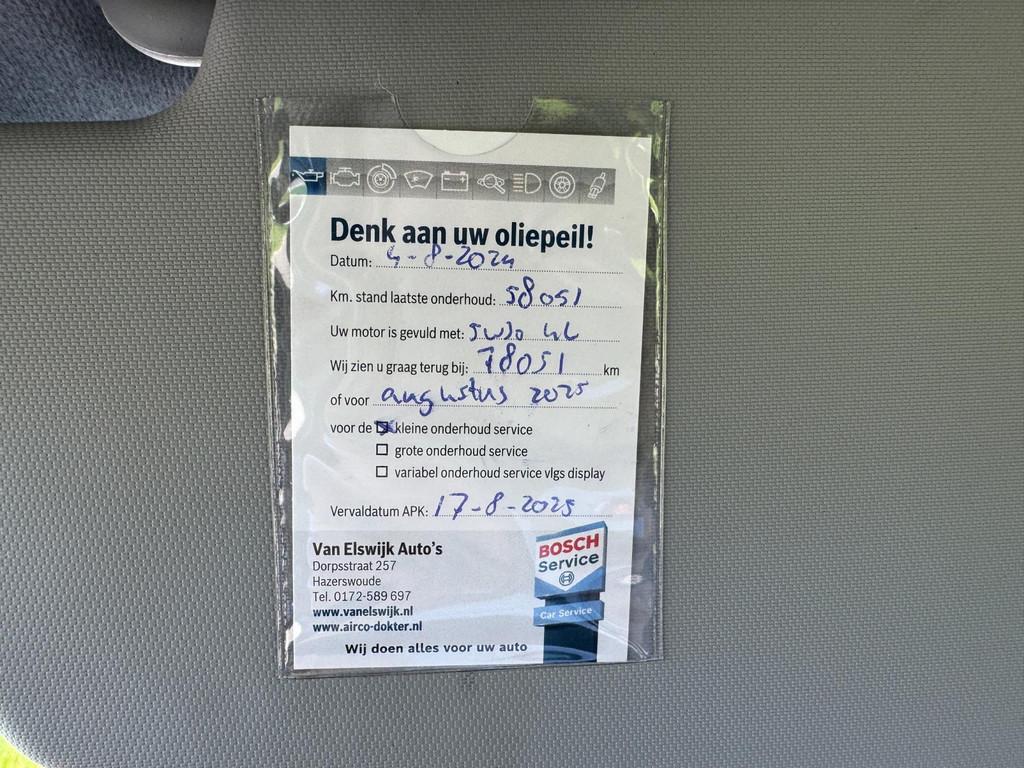 Denk aan uw oliepeil!
Datum: 5-8-2024
Km. stand laatste onderhoud: 58051
Uw motor is gevuld met: 5W30
Wij zien u graag terug bij: 78051 km
of voor augustus 2025
voor de kleine onderhoud service
grote onderhoud service
variabel onderhoud service vlgs display
Vervaldatum APK: 17-8-2025
Van Elswijk Auto's
Dorpsstraat 257
Hazerswoude
Tel. 0172-589 697
www.vanelswijk.nl
www.airco-dokter.nl
Wij doen alles voor uw auto
BOSCH
Service
Car Service